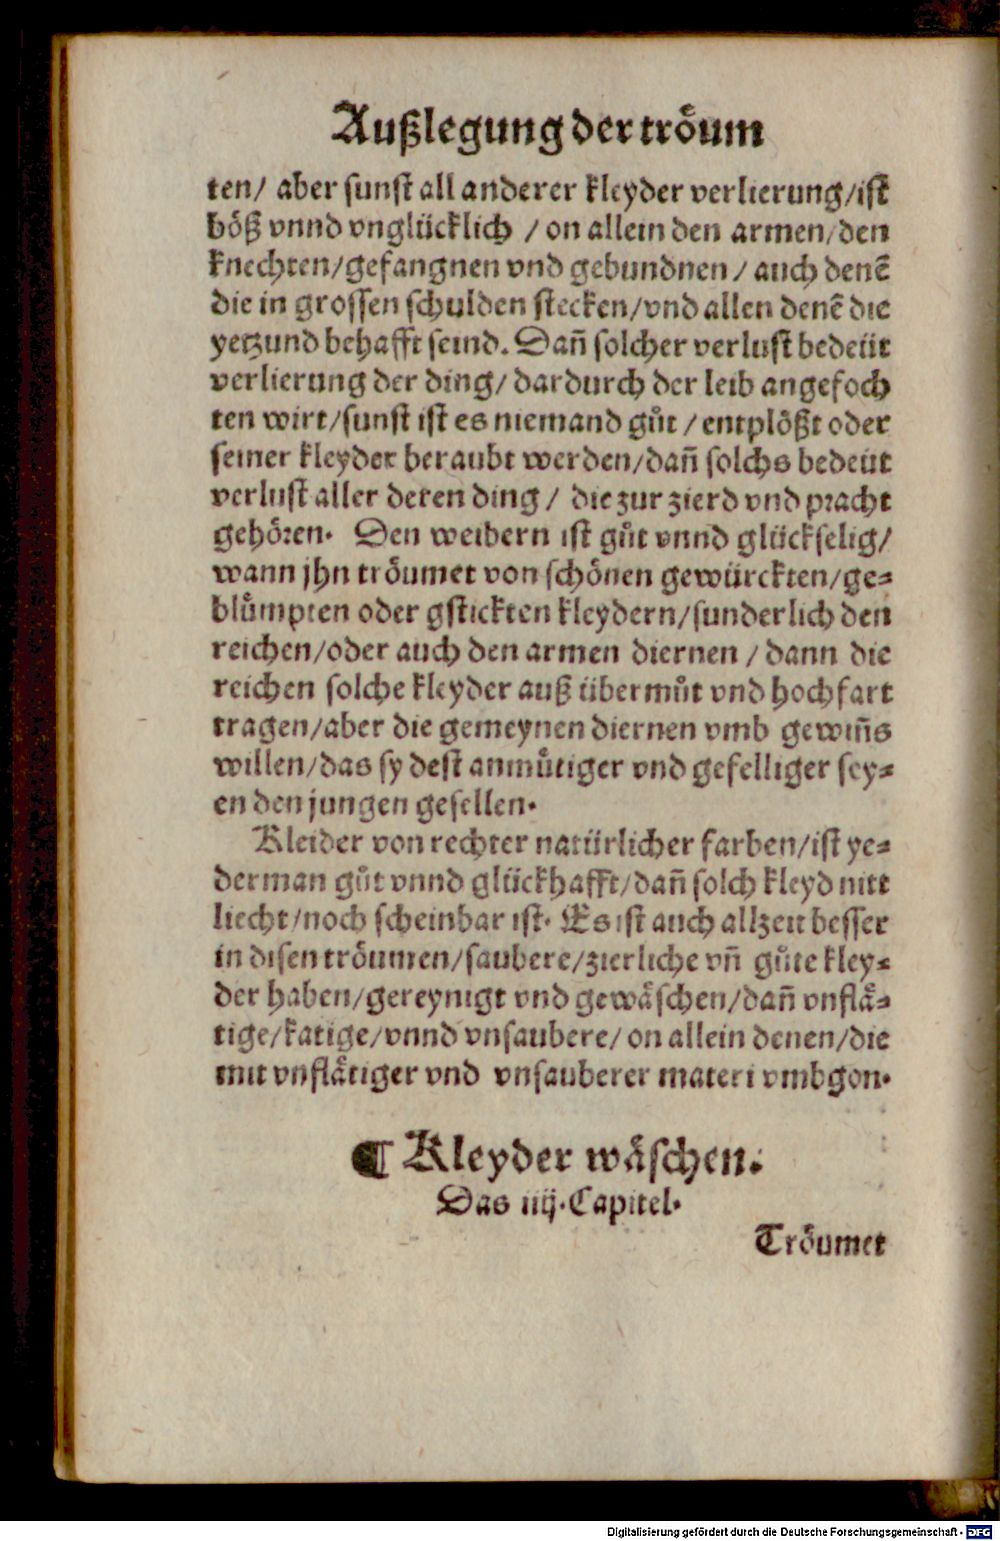 Außlegung der troͤum
ten/ aber sunst all anderer kleyder verlierung/ist
boͤß vnnd vnglücklich / on allein den armen/den
knechten/gefangnen vnd gebundnen / auch denẽ
die in grossen schulden stecken/vnd allen denẽ die
yetzund behafft seind. Dañ solcher verlust bedeüt
verlierung der ding/ dardurch der leib angefoch
ten wirt/sunst ist es niemand guͦt / entploͤßt oder
seiner kleyder beraubt werden/dañ solchs bedeüt
verlust aller deren ding / die zur zierd vnd pracht
gehoͤren. Den weibern ist guͦt vnnd glückselig/
wann jhn troͤumet von schoͤnen gewürckten/ge-
bluͤmpten oder gstickten kleydern/sunderlich den
reichen/oder auch den armen diernen / dann die
reichen solche kleyder auß übermuͦt vnd hochfart
tragen/aber die gemeynen diernen vmb gewiñs
willen/das sy dest anmuͤtiger vnd gefelliger sey-
en den jungen gesellen.
Kleider von rechter natürlicher farben/ist ye-
derman guͦt vnnd glückhafft/dañ solch kleyd nitt
liecht/noch scheinbar ist. Es ist auch allzeit besser
in disen troͤumen/saubere/zierliche vñ guͦte kley-
der haben/gereynigt vnd gewaͤschen/dañ vnflaͤ-
tige/katige/vnnd vnsaubere/ on allein denen/die
mit vnflaͤtiger vnd vnsauberer materi vmbgon.
¶ Kleyder waͤschen.
Das iiij. Capitel.
Troͤumet
Digitalisierung gefördert durch die Deutsche Forschungsgemeinschaft - DFG